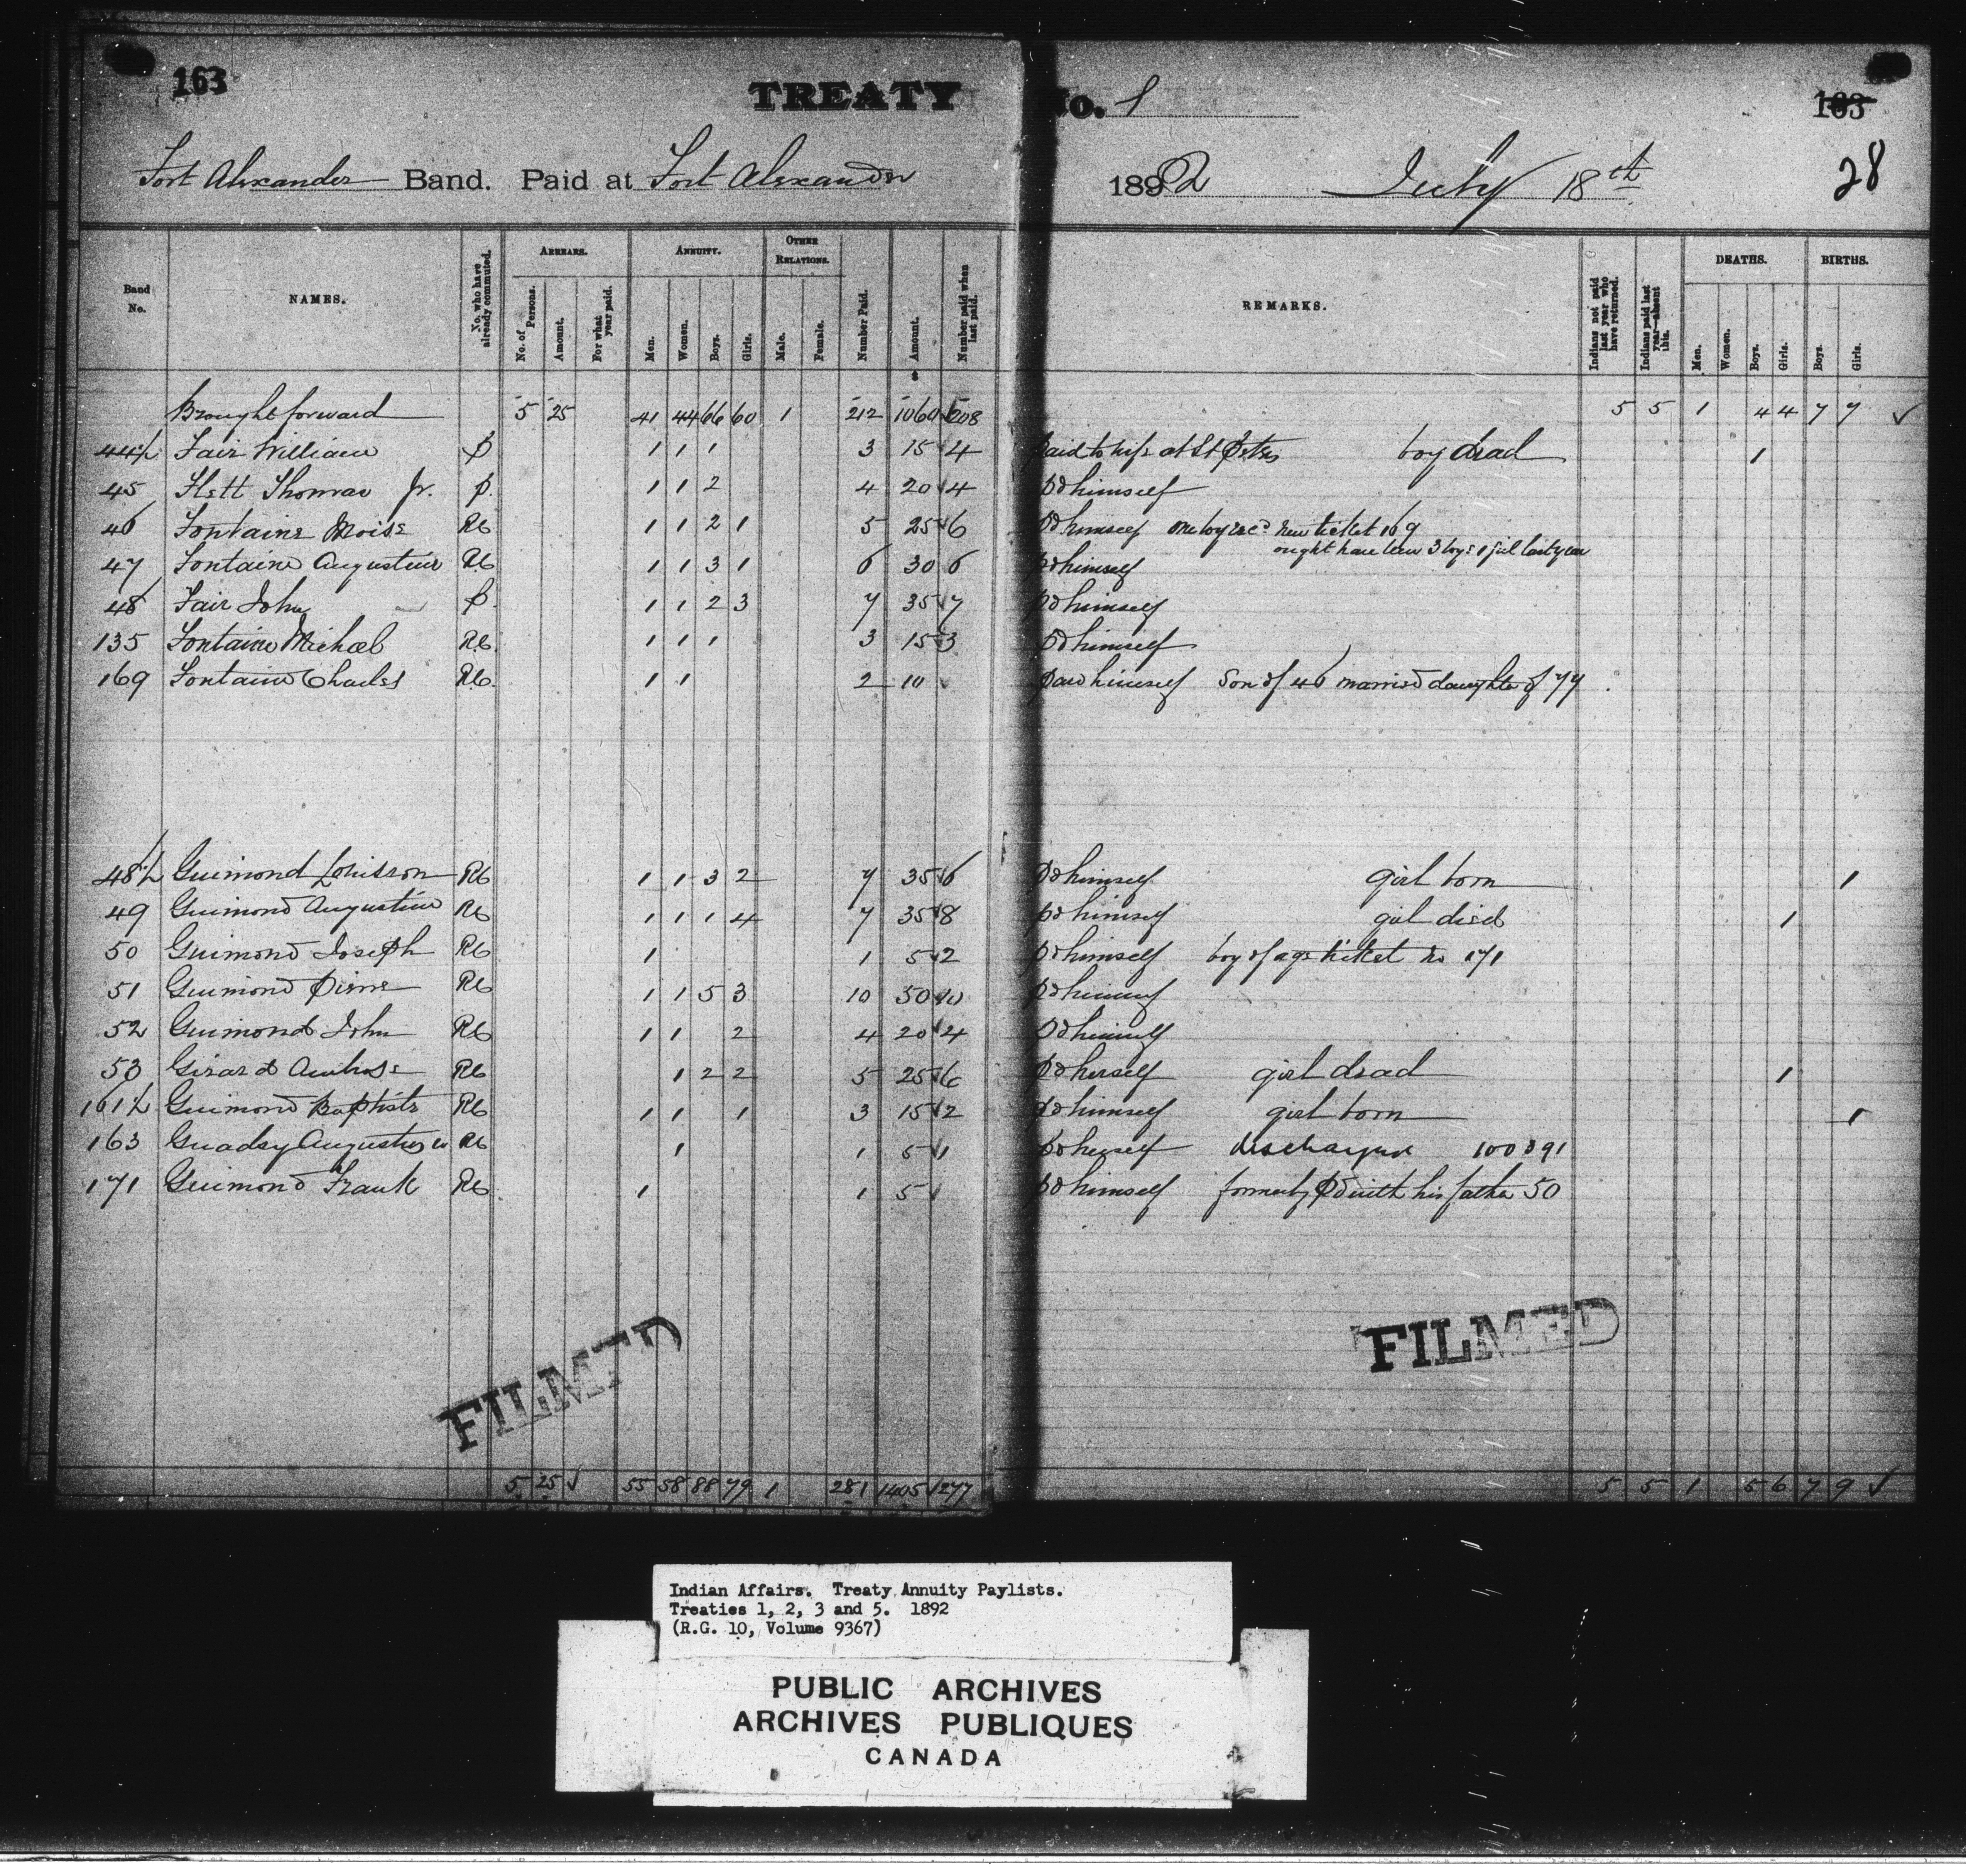 163
TREATY No. 1
163
Fort Alexander Band. Paid at Fort Alexander 1892 July 18th
28
Band No. NAMES. No. who have already commuted. ARREARS. No. of Persons. Amount. For what year paid. ANNUITY. Men. Women. Boys. Girls. OTHER RELATIONS. Male. Female. Number Paid. Amount. Number paid when last paid. REMARKS. Indians not paid last year who have returned. Indians paid last year—absent this. DEATHS. Men. Women. Boys. Girls. BIRTHS. Boys. Girls.
Brought forward 5 25 41 44 66 60 1 212 1060 208 5 5 1 4 4 7 7 ✓
44½ Fair William P 1 1 1 3 15 4 Paid to wife at St Peters boy dead 1
45 Flett Thomas Jr. P. 1 1 2 4 20 4 Pd himself
46 Fontaine Moise RC 1 1 2 1 5 25 6 Pd himself one boy recd new ticket 169
ought have been 3 boys 1 girl last year
47 Fontaine Augustine RC 1 1 3 1 6 30 6 Pd himself
48 Fair John P. 1 1 2 3 7 35 7 Pd himself
135 Fontaine Michael RC. 1 1 1 3 15 3 Pd himself
169 Fontaine Charles RC. 1 1 2 10 ✓ Paid himself Son of 46 married daughter of 77
48½ Guimond Louisson RC 1 1 3 2 7 35 6 Pd himself girl born 1
49 Guimond Augustine RC 1 1 1 4 7 35 8 Pd himself girl died 1
50 Guimond Joseph RC 1 1 5 2 Pd himself boy of age ticket no 171
51 Guimond Pierre RC 1 1 5 3 10 50 10 Pd himself
52 Guimond John RC 1 1 2 4 20 4 Pd himself
53 Girard Ambrose RC 1 2 2 5 25 6 Pd herself girl dead 1
161½ Guimond Baptiste RC 1 1 1 3 15 2 Pd himself girl born 1
163 Augustus RC 1 1 5 1 Pd herself
171 Guimond Frank RC. 1 1 5 ✓ Pd himself formerly Pd with his father 50
FILMED
FILMED
5 25 ✓ 55 58 88 79 1 281 1405 277 5 5 1 5 6 7 9 ✓
Indian Affairs. Treaty Annuity Paylists.
Treaties 1, 2, 3 and 5. 1892
(R.G. 10, Volume 9367)
PUBLIC ARCHIVES
ARCHIVES PUBLIQUES
CANADA